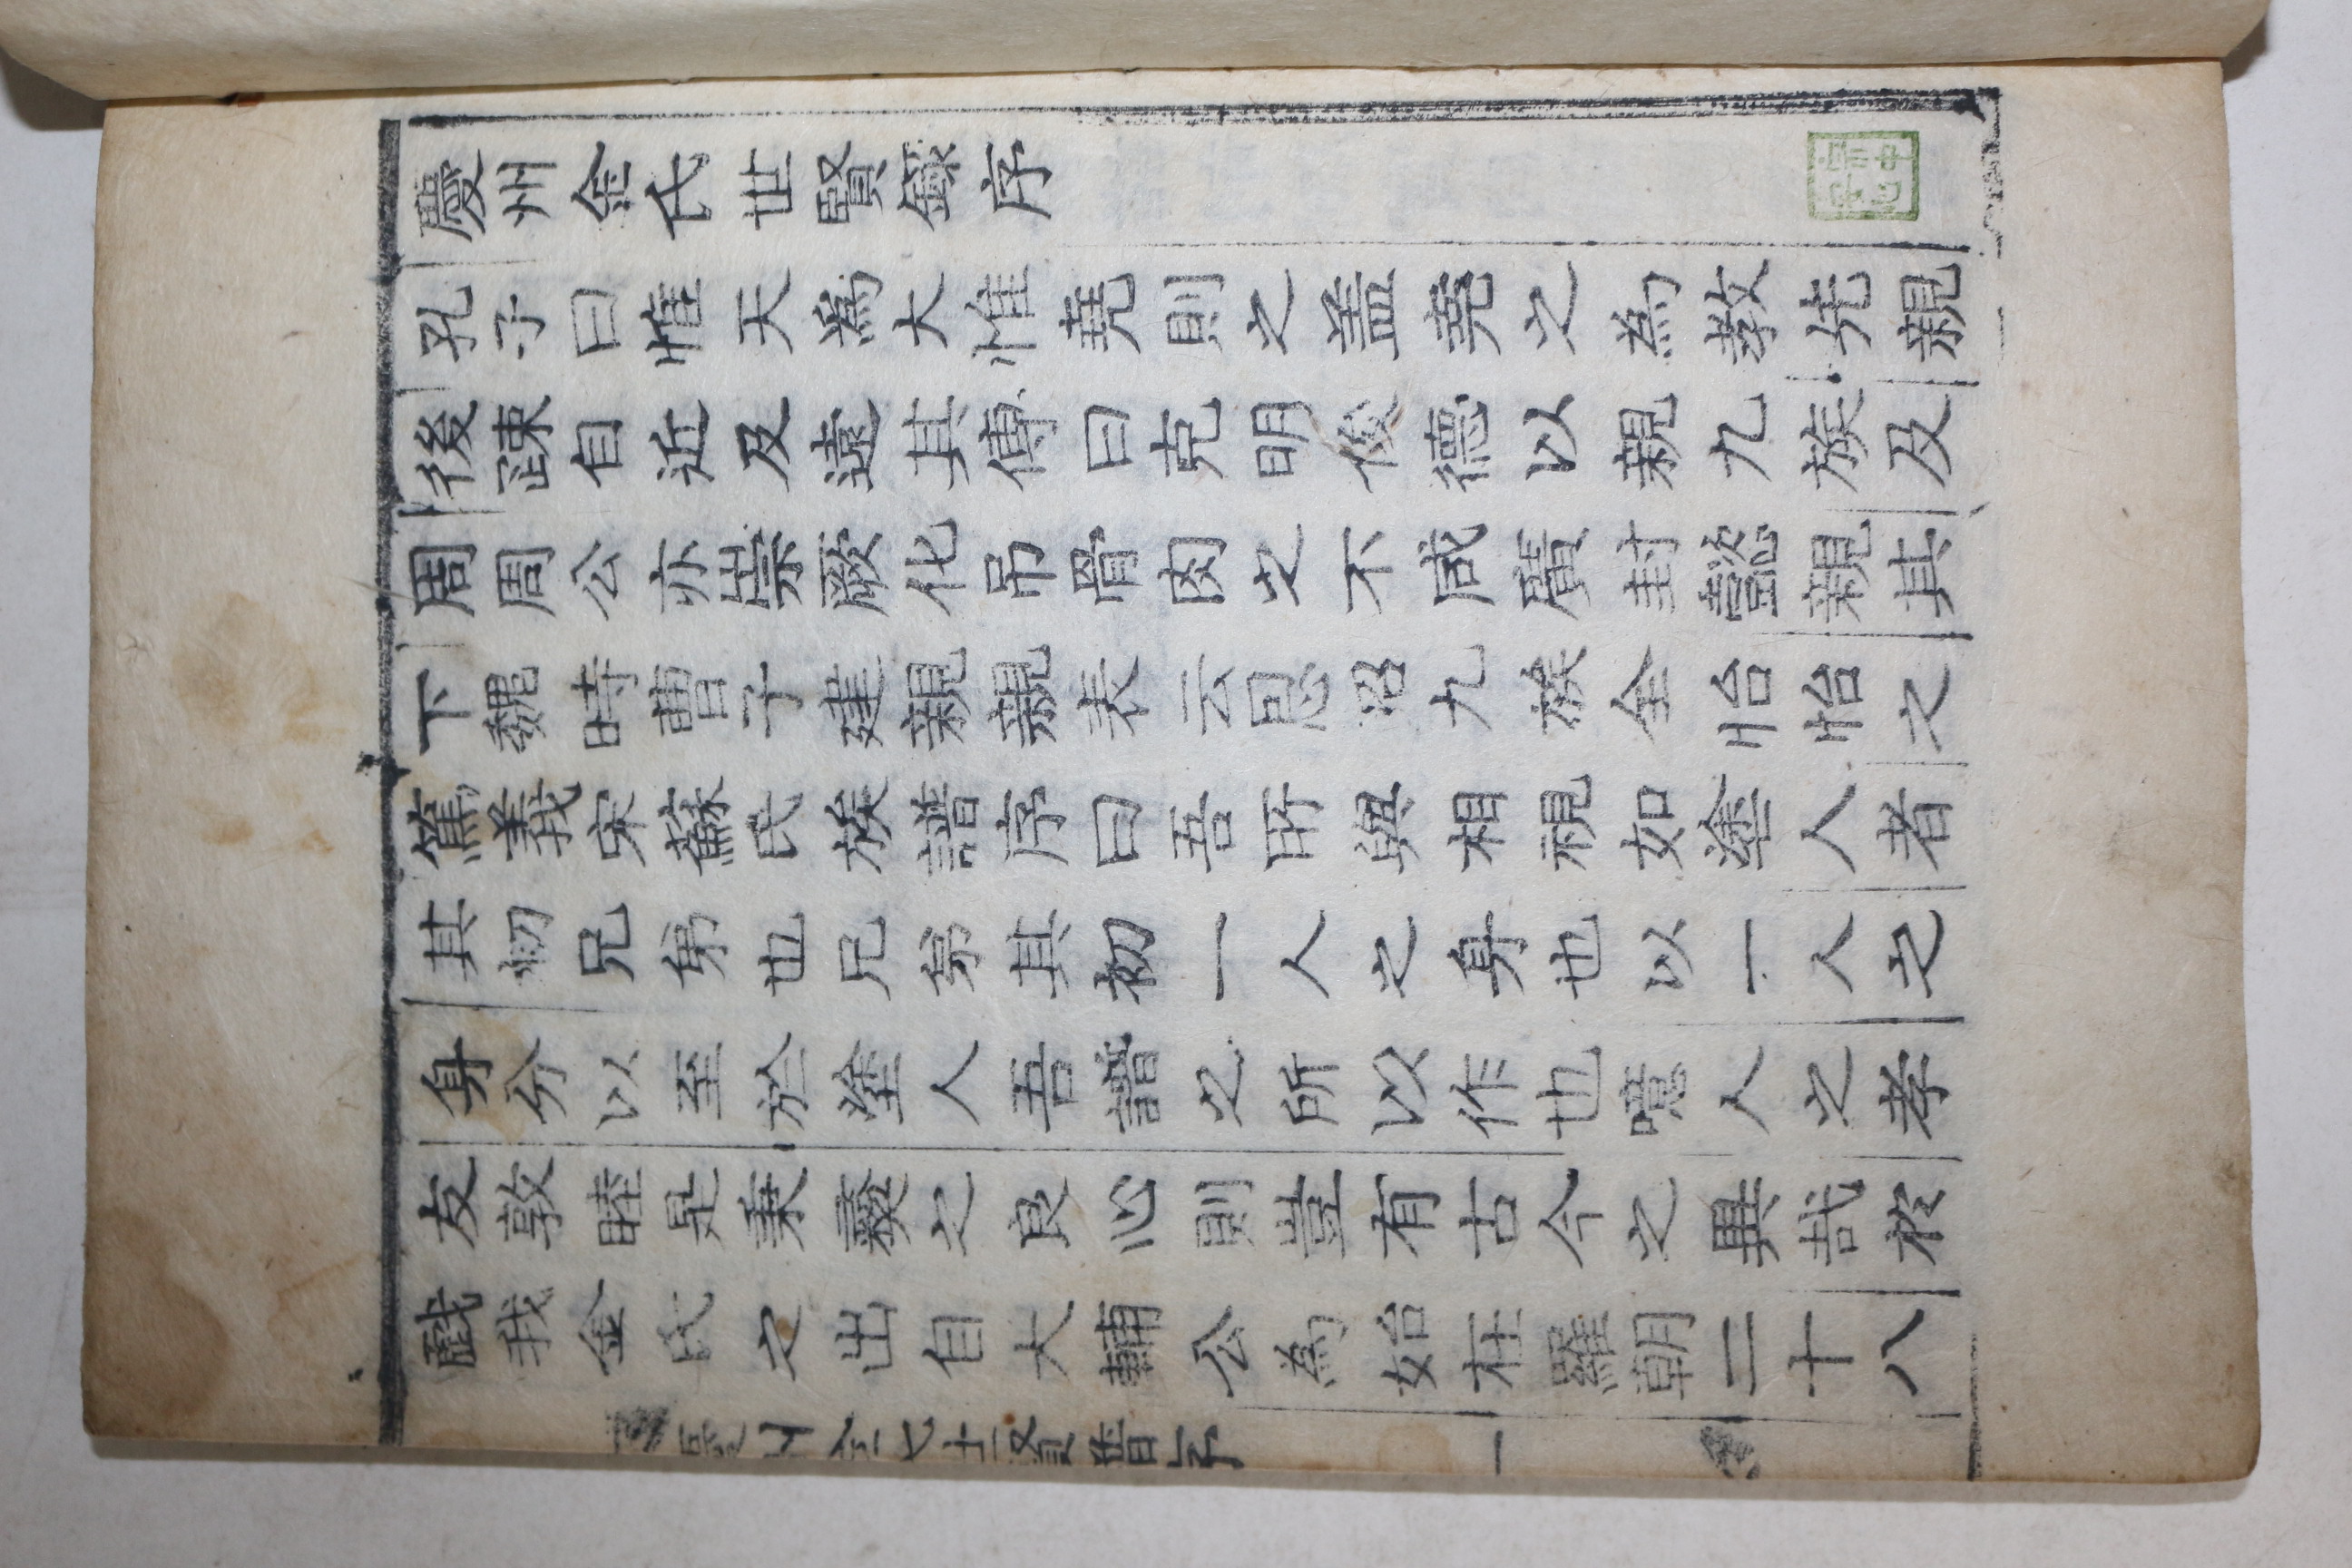 慶州金氏世賢錄序
孔子曰惟天爲大惟堯則之盖堯之為教先親
後踈自近及遠其傳曰克明俊德以親九族及
周周公亦崇厥化吊管肉之不咸廣封懿親其
下魏時曹子建親親表云恩沼九族全怡怡之
篤義宋蘇氏族譜序曰吾所與相視如塗人者
其初兄弟也兄弟其初一人之身也以一人之
身分以至於塗人吾譜之所以作也噫人之孝
友敦睦是秉彛之良心則豈有古今之異哉於
戱我金氏之出自大輔公為始在羅朝二十八
慶州金氏世賢譜序 一